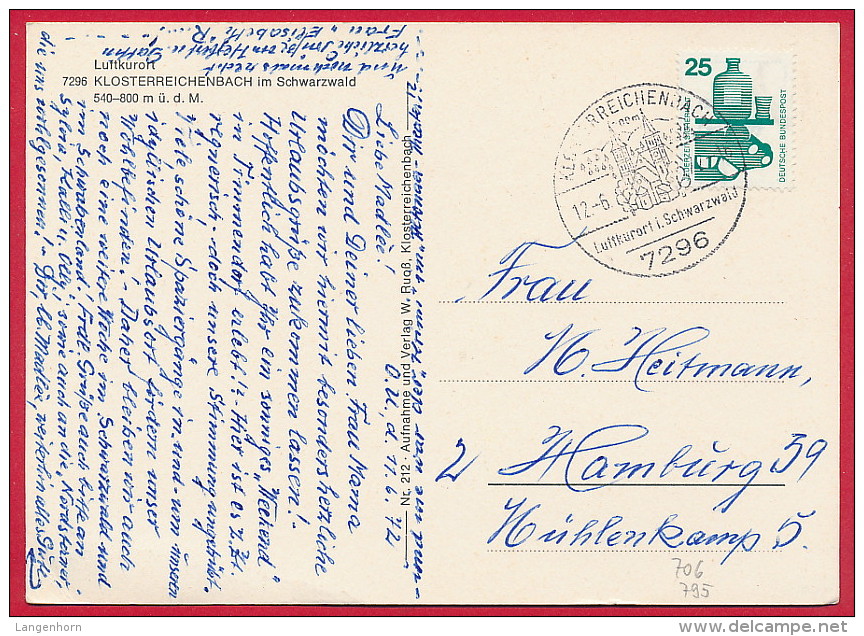 Luftkurort
7296 KLOSTERREICHENBACH im Schwarzwald
540–800 m ü. d. M.
O. U., d. 11.6.72
Liebe Madlée!
Dir und Deiner lieben Frau Mama
möchten wir hiermit besonders herzliche
Urlaubsgrüße zukommen lassen! –
Hoffentlich habt Ihr ein sonniges „Weekend"
in Timmendorf erlebt!? – Hier ist es z. Zt.
regnerisch – doch unsere Stimmung ungetrübt.
Viele schöne Spaziergänge in und um unseren
idyllischen Urlaubsort fördern unser
Wohlbefinden! – Daher bleiben wir auch
noch eine weitere Woche im Schwarzwald und
im Schwabenland! Frdl. Grüße auch bitte an
sowie auch an die
die uns wohlgesonnen! – Dir, lb. Madlée, weiterhin alles Gute
und nochmals recht
herzliche Grüße, von
Frau „Elisabeth" R.
Nr. 212 - Aufnahme und Verlag W. Rugß, Klosterreichenbach
25
JEDERZEIT SICHERHEIT
DEUTSCHE BUNDESPOST
KLOSTERREICHENBACH
12.-6.
Luftkurort i. Schwarzwald
7296
Frau
H. Heitmann,
2 Hamburg 39
Mühlenkamp 5.
706
795
Langenhorn
www.delcampe.net